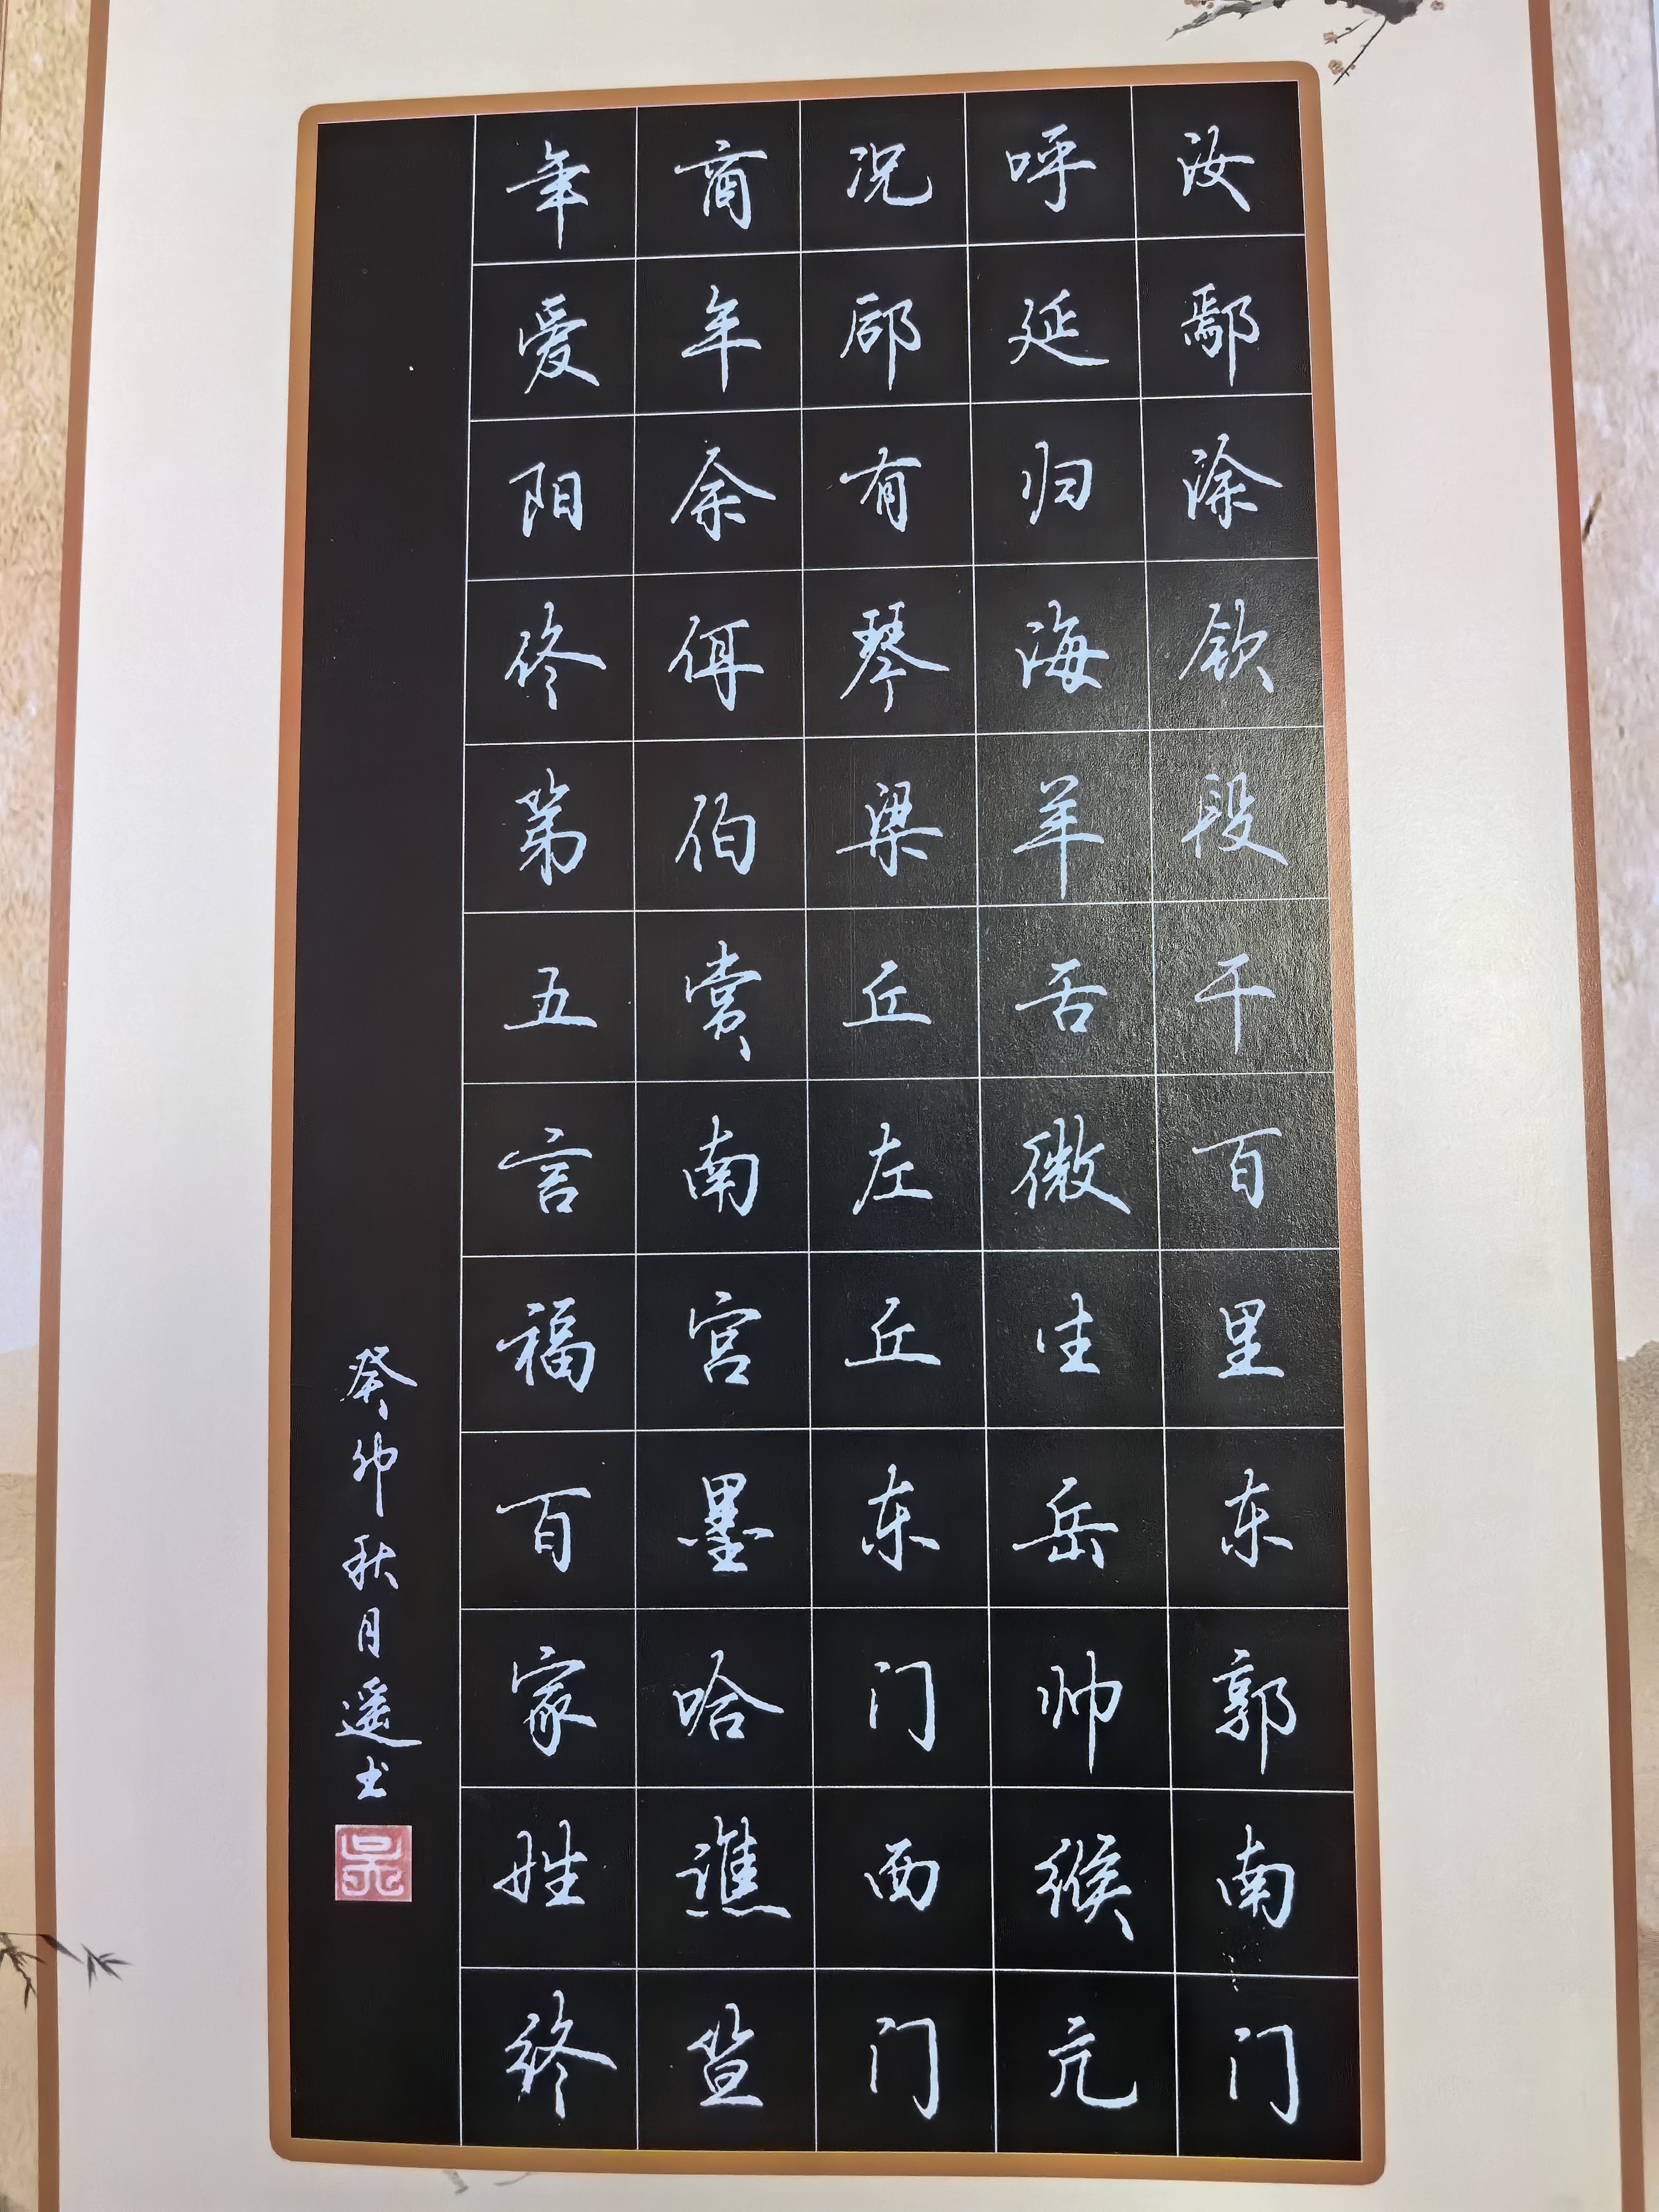 汝鄢涂钦段干百里东郭南门
呼延归海羊舌微生岳帅缑亢
况郈有琴梁丘左丘东门西门
商牟佘佴伯赏南宫墨哈谯笪
年爱阳佟第五言福百家姓终
癸卯秋月遥书
吴